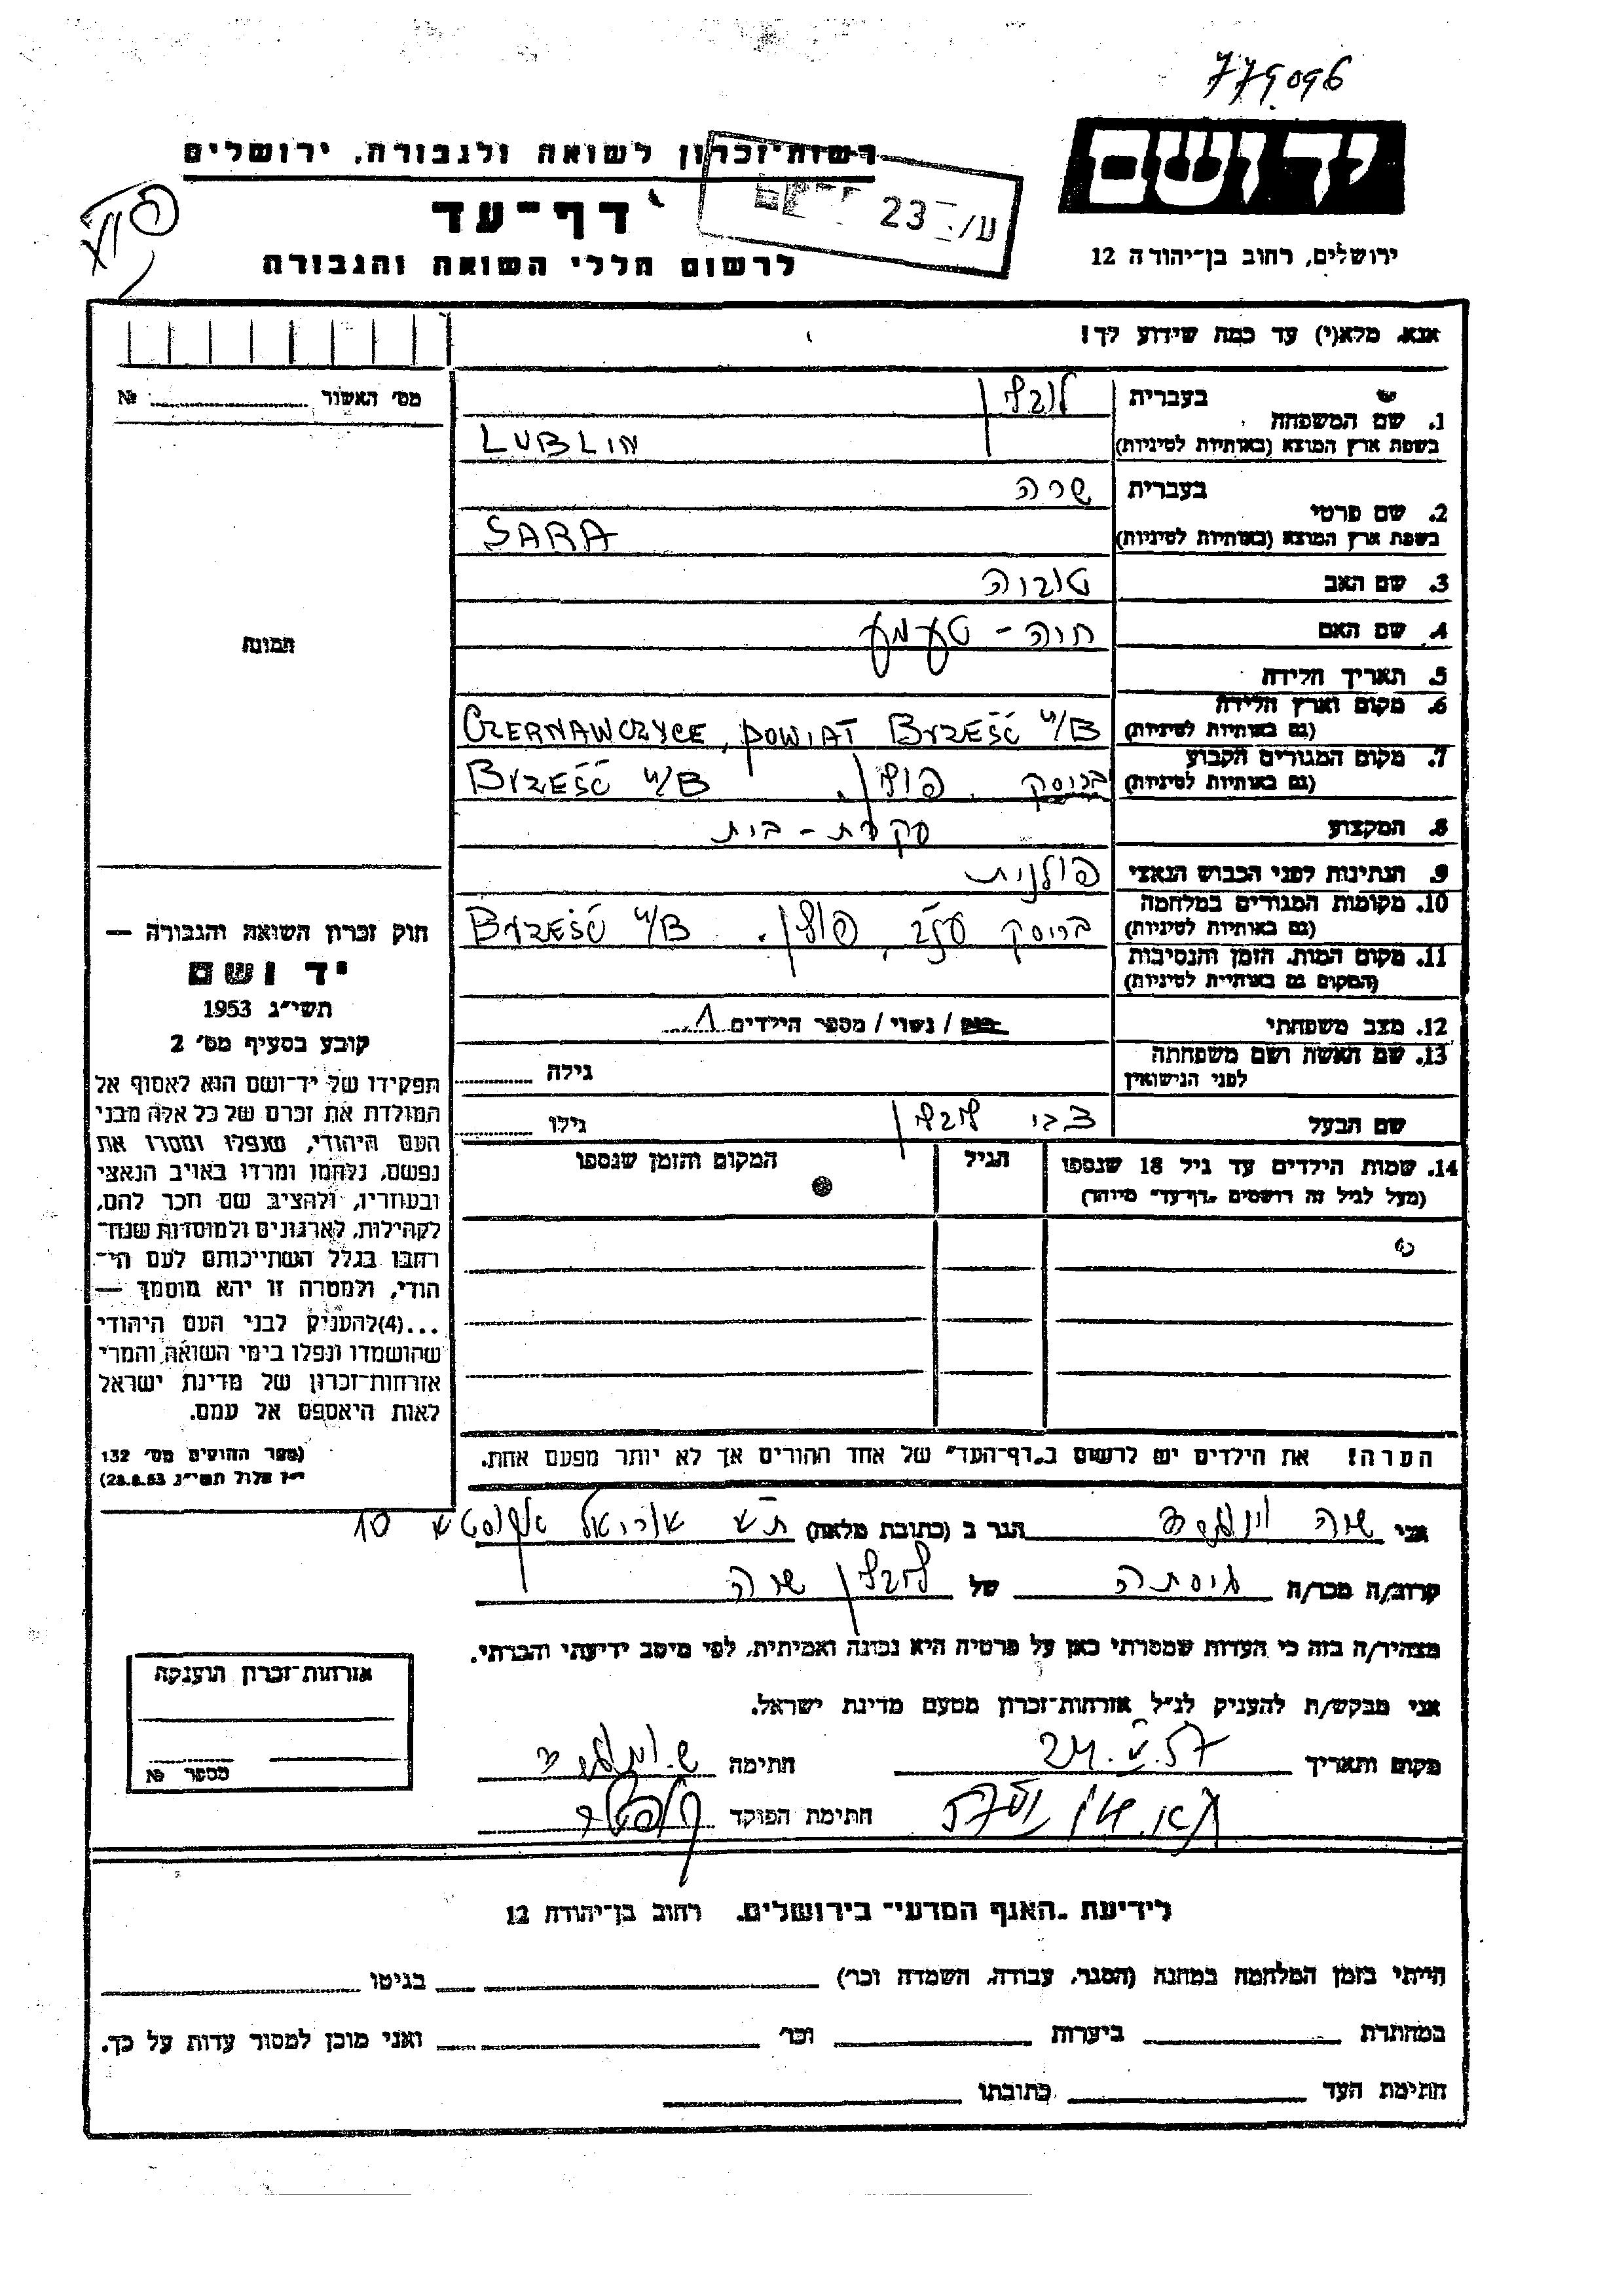 779096
יד ושם
רשות־זכרון לשואה ולגבורה, ירושלים
דף־עד
23
לרשום חללי השואה והגבורה
ירושלים, רחוב בן־יהודה 12
אנא, מלא(י) עד כמה שידוע לך!
מס׳ האשור № 
1. שם המשפחה
בעברית לובלין
בשפת ארץ המוצא (באותיות לטיניות) LUBLIN
2. שם פרטי
בעברית שרה
בשפת ארץ המוצא (באותיות לטיניות) SARA
3. שם האב טוביה
4. שם האם חוה -
תמונה
5. תאריך הלידה
6. מקום וארץ הלידה
(גם באותיות לטיניות) CZERNAWCZYCE, POWIAT BRZEŚĆ n/B
7. מקום המגורים הקבוע
(גם באותיות לטיניות) בריסק, פולין. BRZEŚĆ n/B
8. המקצוע עקרת-בית
9. הנתינות לפני הכבוש הנאצי פולנית
10. מקומות המגורים במלחמה
(גם באותיות לטיניות) בריסק, פולין. BRZEŚĆ n/B
11. מקום המות, הזמן והנסיבות
(המקום גם באותיות לטיניות)
12. מצב משפחתי רווק / נשוי / מספר הילדים 1
13. שם האשה ושם משפחתה
לפני הנישואין
גילה
שם הבעל צבי לובלין גילו
14. שמות הילדים עד גיל 18 שנספו
(מעל לגיל זה רושמים „דף־עד” מיוחד)
הגיל
המקום והזמן שנספו
חוק זכרון השואה והגבורה —
יד ושם
תשי״ג 1953
קובע בסעיף מס׳ 2
תפקידו של יד־ושם הוא לאסוף אל
המולדת את זכרם של כל אלה מבני
העם היהודי, שנפלו ומסרו את
נפשם, נלחמו ומרדו באויב הנאצי
ובעוזריו, ולהציב שם וזכר להם,
לקהילות, לארגונים ולמוסדות שנח־
רבו בגלל השתייכותם לעם הי־
הודי, ולמטרה זו יהא מוסמך —
...(4)להעניק לבני העם היהודי
שהושמדו ונפלו בימי השואה והמרי
אזרחות־זכרון של מדינת ישראל
לאות היאספם אל עמם.
(ספר החוקים מס׳ 132
י״ז אלול תשי״ג 28.8.53)
הערה! את הילדים יש לרשום ב„דף־העד” של אחד ההורים אך לא יותר מפעם אחת.
אני שרה הגר ב (כתובת מלאה) ת״א אוריאל אקוסטא 10
קרוב/ה מכר/ה גיסתה של לובלין שרה
מצהיר/ה בזה כי העדות שמסרתי כאן על פרטיה היא נכונה ואמיתית, לפי מיטב ידיעתי והכרתי.
אני מבקש/ת להעניק לנ״ל אזרחות־זכרון מטעם מדינת ישראל.
מקום ותאריך 24.V.57 חתימה
חתימת הפוקד
אזרחות־זכרון הוענקה
מספר №
לידיעת „האגף המדעי” בירושלים, רחוב בן־יהודה 12
הייתי בזמן המלחמה במחנה (הסגר, עבודה, השמדה וכו׳) בגיטו
במחתרת ביערות וכו׳ ואני מוכן למסור עדות על כך.
חתימת העד כתובתו